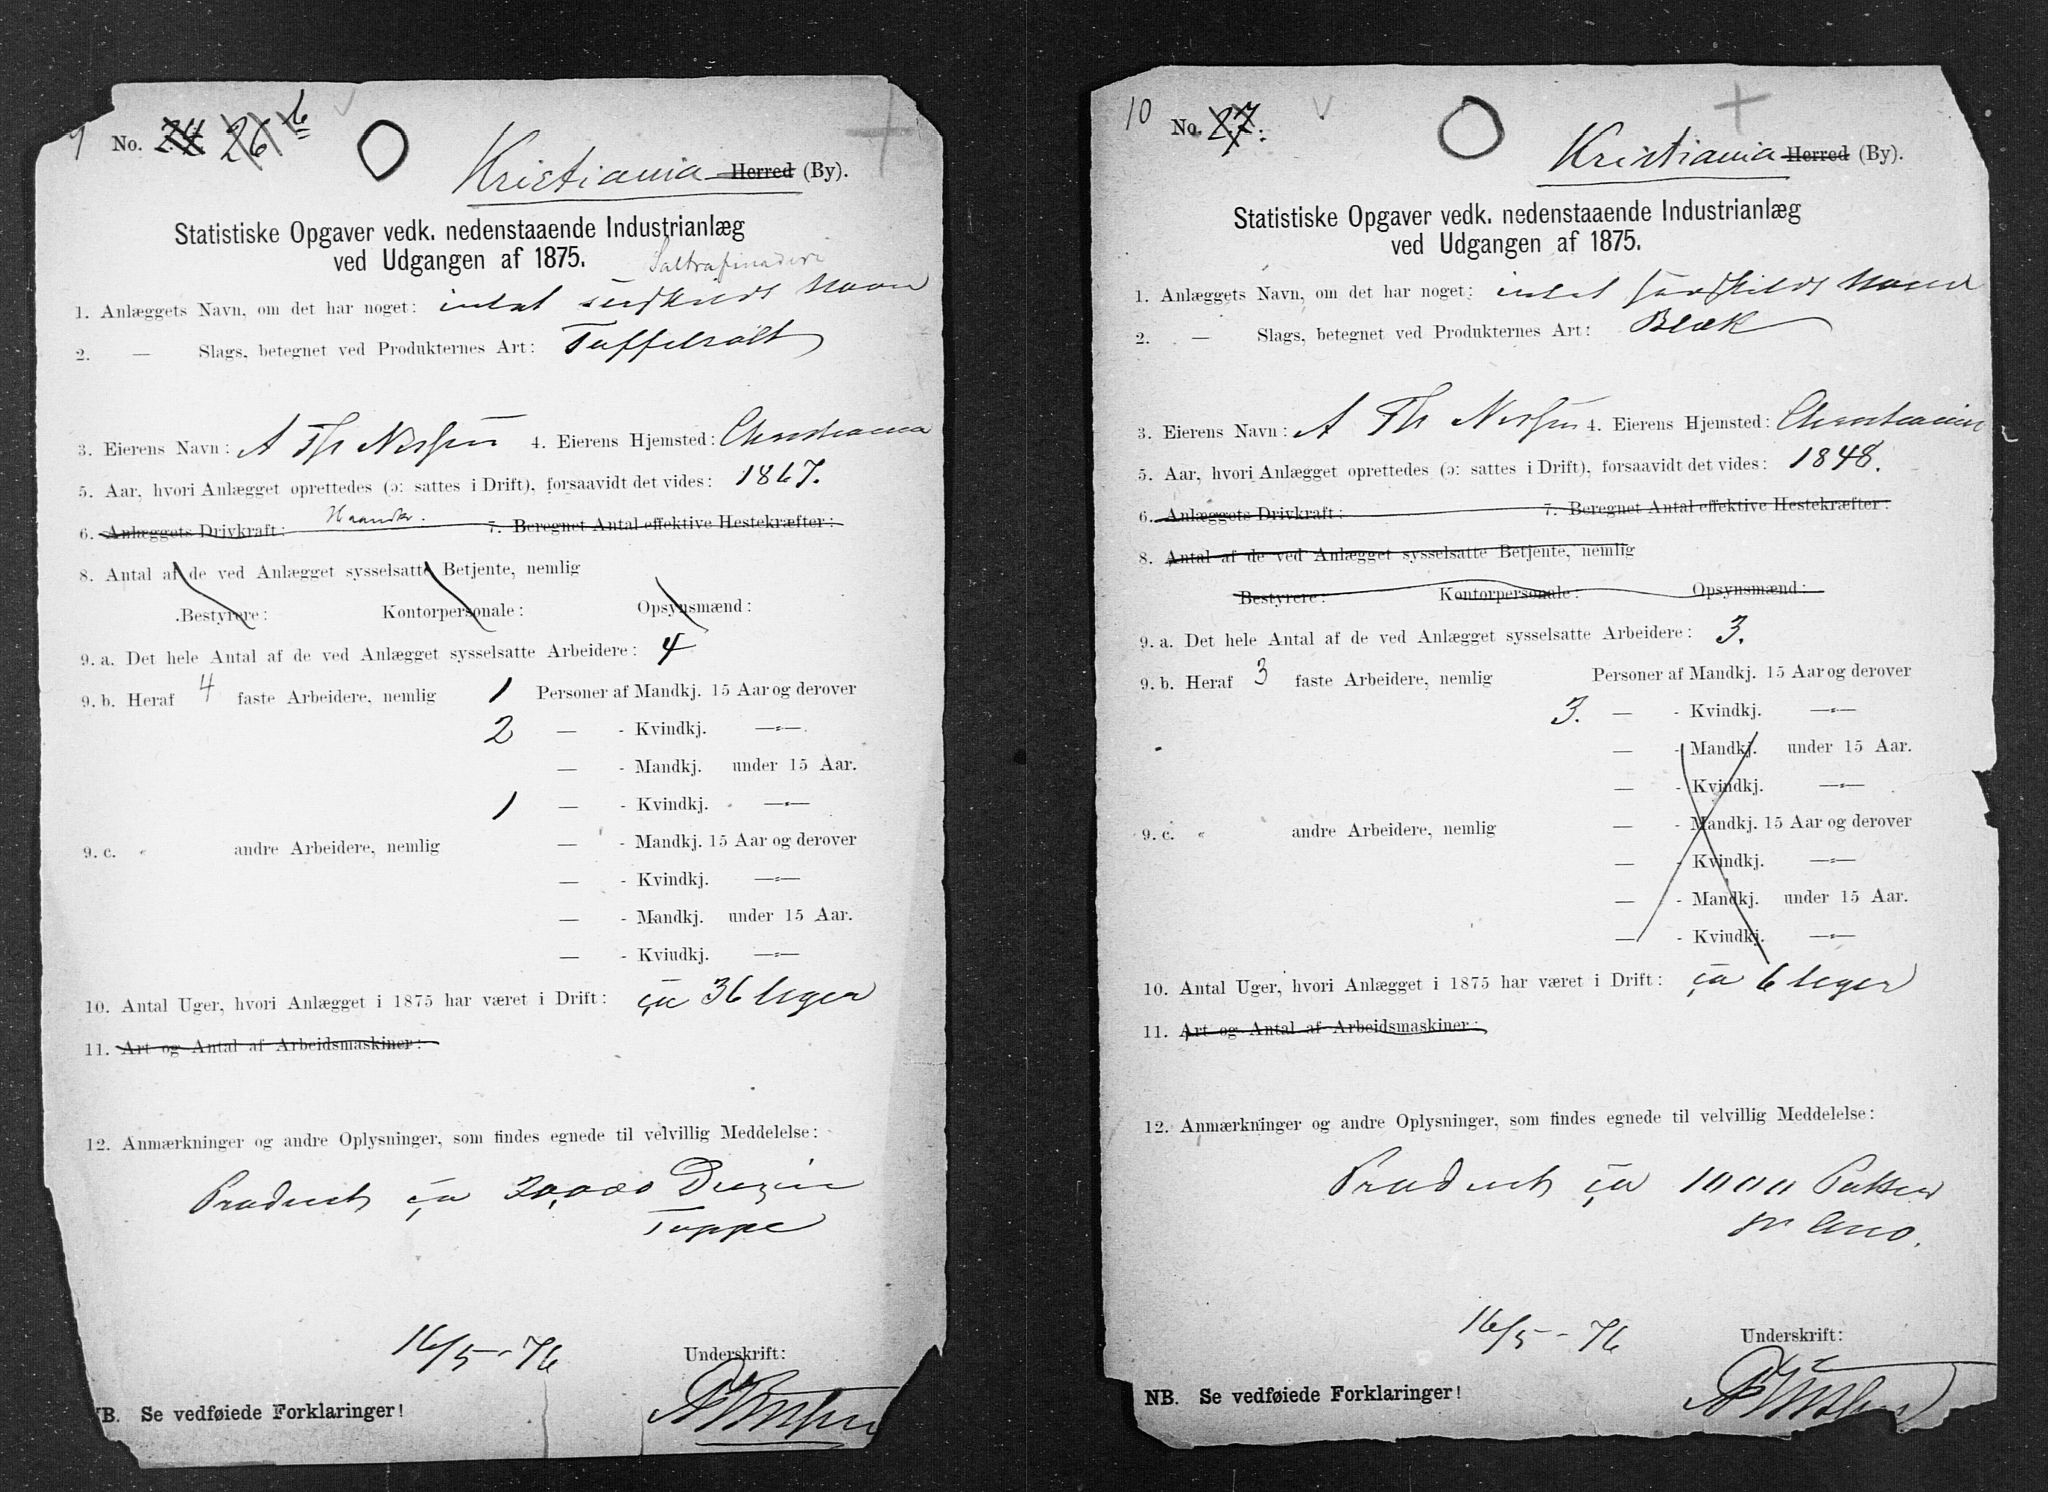 9 No. 24 26 b
Kristiania Herred (By).
Statistiske Opgaver vedk. nedenstaaende Industrianlæg
ved Udgangen af 1875.
Saltrafinaderi
1. Anlæggets Navn, om det har noget: intet særskildt Navn
2. — Slags, betegnet ved Produkternes Art: Taffelsalt
3. Eierens Navn: A Th Nissen 4. Eierens Hjemsted: Christiania
5. Aar, hvori Anlægget oprettedes (ɔ: sattes i Drift), forsaavidt det vides: 1867.
6. Anlæggets Drivkraft: Haandkr. 7. Beregnet Antal effektive Hestekræfter:
8. Antal af de ved Anlægget sysselsatte Betjente, nemlig
Bestyrere: Kontorpersonale: Opsynsmænd:
9. a. Det hele Antal af de ved Anlægget sysselsatte Arbeidere: 4
9. b. Heraf 4 faste Arbeidere, nemlig 1 Personer af Mandkj. 15 Aar og derover
2 — - Kvindkj. —„—
— - Mandkj. under 15 Aar.
1 — - Kvindkj. —„—
9. c. „ andre Arbeidere, nemlig — - Mandkj. 15 Aar og derover
— - Kvindkj. —„—
— - Mandkj. under 15 Aar.
— - Kvindkj. —„—
10. Antal Uger, hvori Anlægget i 1875 har været i Drift: ça 36 Uger
11. Art og Antal af Arbeidsmaskiner:
12. Anmærkninger og andre Oplysninger, som findes egnede til velvillig Meddelelse:
Product ça 20,000 Duzin
Toppe
16/5-76
Underskrift:
A Th Nissen
NB. Se vedføiede Forklaringer!
10 No. 27.
Kristiania Herred (By).
Statistiske Opgaver vedk. nedenstaaende Industrianlæg
ved Udgangen af 1875.
1. Anlæggets Navn, om det har noget: intet særskildt Navn
2. — Slags, betegnet ved Produkternes Art: Blæk
3. Eierens Navn: A Th Nissen 4. Eierens Hjemsted: Christiania
5. Aar, hvori Anlægget oprettedes (ɔ: sattes i Drift), forsaavidt det vides: 1848.
6. Anlæggets Drivkraft: 7. Beregnet Antal effektive Hestekræfter:
8. Antal af de ved Anlægget sysselsatte Betjente, nemlig
Bestyrere: Kontorpersonale: Opsynsmænd:
9. a. Det hele Antal af de ved Anlægget sysselsatte Arbeidere: 3.
9. b. Heraf 3 faste Arbeidere, nemlig Personer af Mandkj. 15 Aar og derover
3. — - Kvindkj. —„—
— - Mandkj. under 15 Aar.
— - Kvindkj. —„—
9. c. „ andre Arbeidere, nemlig — - Mandkj. 15 Aar og derover
— - Kvindkj. —„—
— - Mandkj. under 15 Aar.
— - Kvindkj. —„—
10. Antal Uger, hvori Anlægget i 1875 har været i Drift: ça 6 Uger
11. Art og Antal af Arbeidsmaskiner:
12. Anmærkninger og andre Oplysninger, som findes egnede til velvillig Meddelelse:
Product ça 1000 Potter
pr Anno.
16/5-76
Underskrift:
A Th Nissen
NB. Se vedføiede Forklaringer!